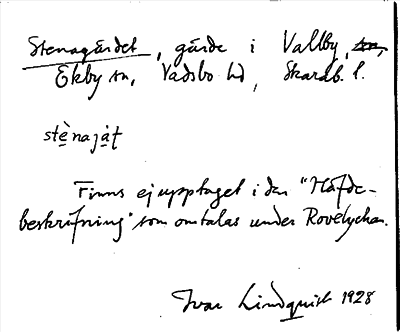 Stenagärdet, gärde i Vallby,
Ekby sn, Vadsbo hd, Skarab. l.
stènajǻt
Finns ej upptaget i den "Häfde-
beskrifning" som omtalas under Rovelyckan.
Ivar Lindquist 1928